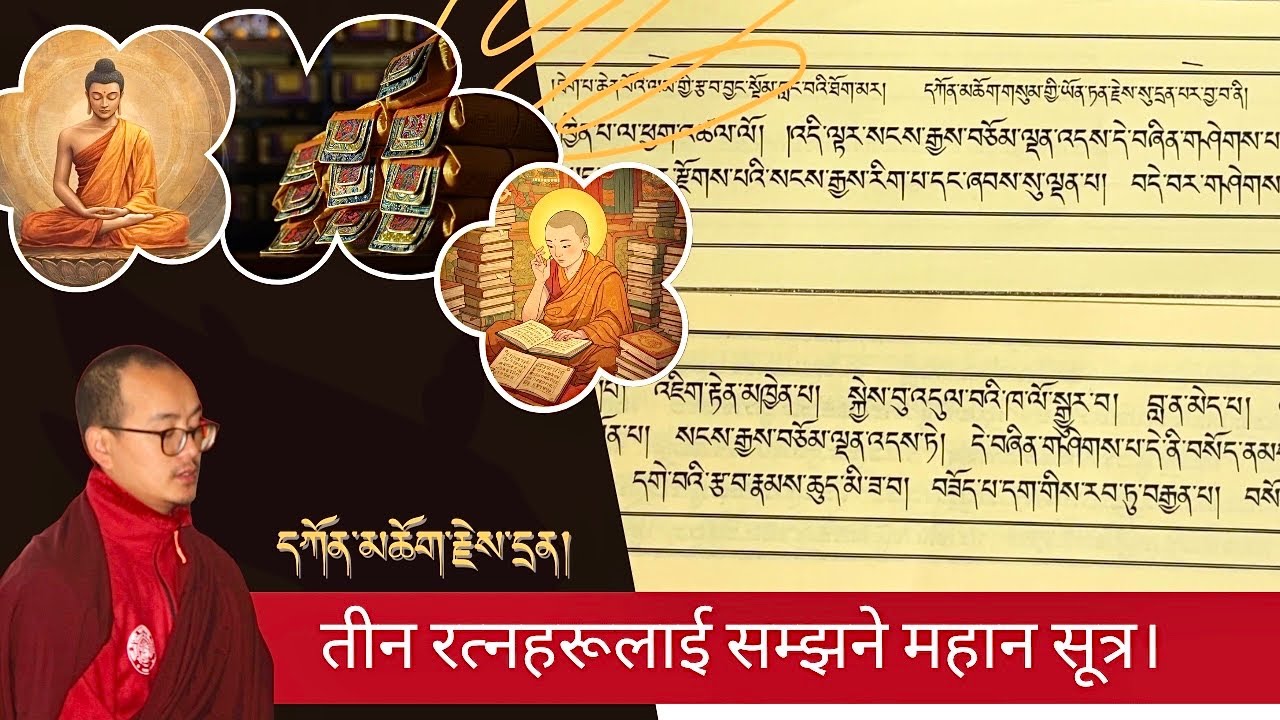 །ཐེག་པ་ཆེན་པོའི་ལམ་གྱི་རྩ་བ་བྱང་སྡོམ་བླང་བའི་ཐོག་མར། དཀོན་མཆོག་གསུམ་གྱི་ཡོན་ཏན་རྗེས་སུ་དྲན་པར་བྱ་བ་ནི།
མཁྱེན་པ་ལ་ཕྱག་འཚལ་ལོ། །འདི་ལྟར་སངས་རྒྱས་བཅོམ་ལྡན་འདས་དེ་བཞིན་གཤེགས་པ་
རྫོགས་པའི་སངས་རྒྱས་རིག་པ་དང་ཞབས་སུ་ལྡན་པ། བདེ་བར་གཤེགས་
འཇིག་རྟེན་མཁྱེན་པ། སྐྱེས་བུ་འདུལ་བའི་ཁ་ལོ་སྒྱུར་བ། བླ་ན་མེད་པ།
སངས་རྒྱས་བཅོམ་ལྡན་འདས་ཏེ། དེ་བཞིན་གཤེགས་པ་དེ་ནི་བསོད་ནམས
དགེ་བའི་རྩ་བ་རྣམས་ཆུད་མི་ཟ་བ། བཟོད་པ་དག་གིས་རབ་ཏུ་བརྒྱན་པ། བསོ
དཀོན་མཆོག་རྗེས་དྲན།
तीन रत्नहरूलाई सम्झने महान सूत्र।